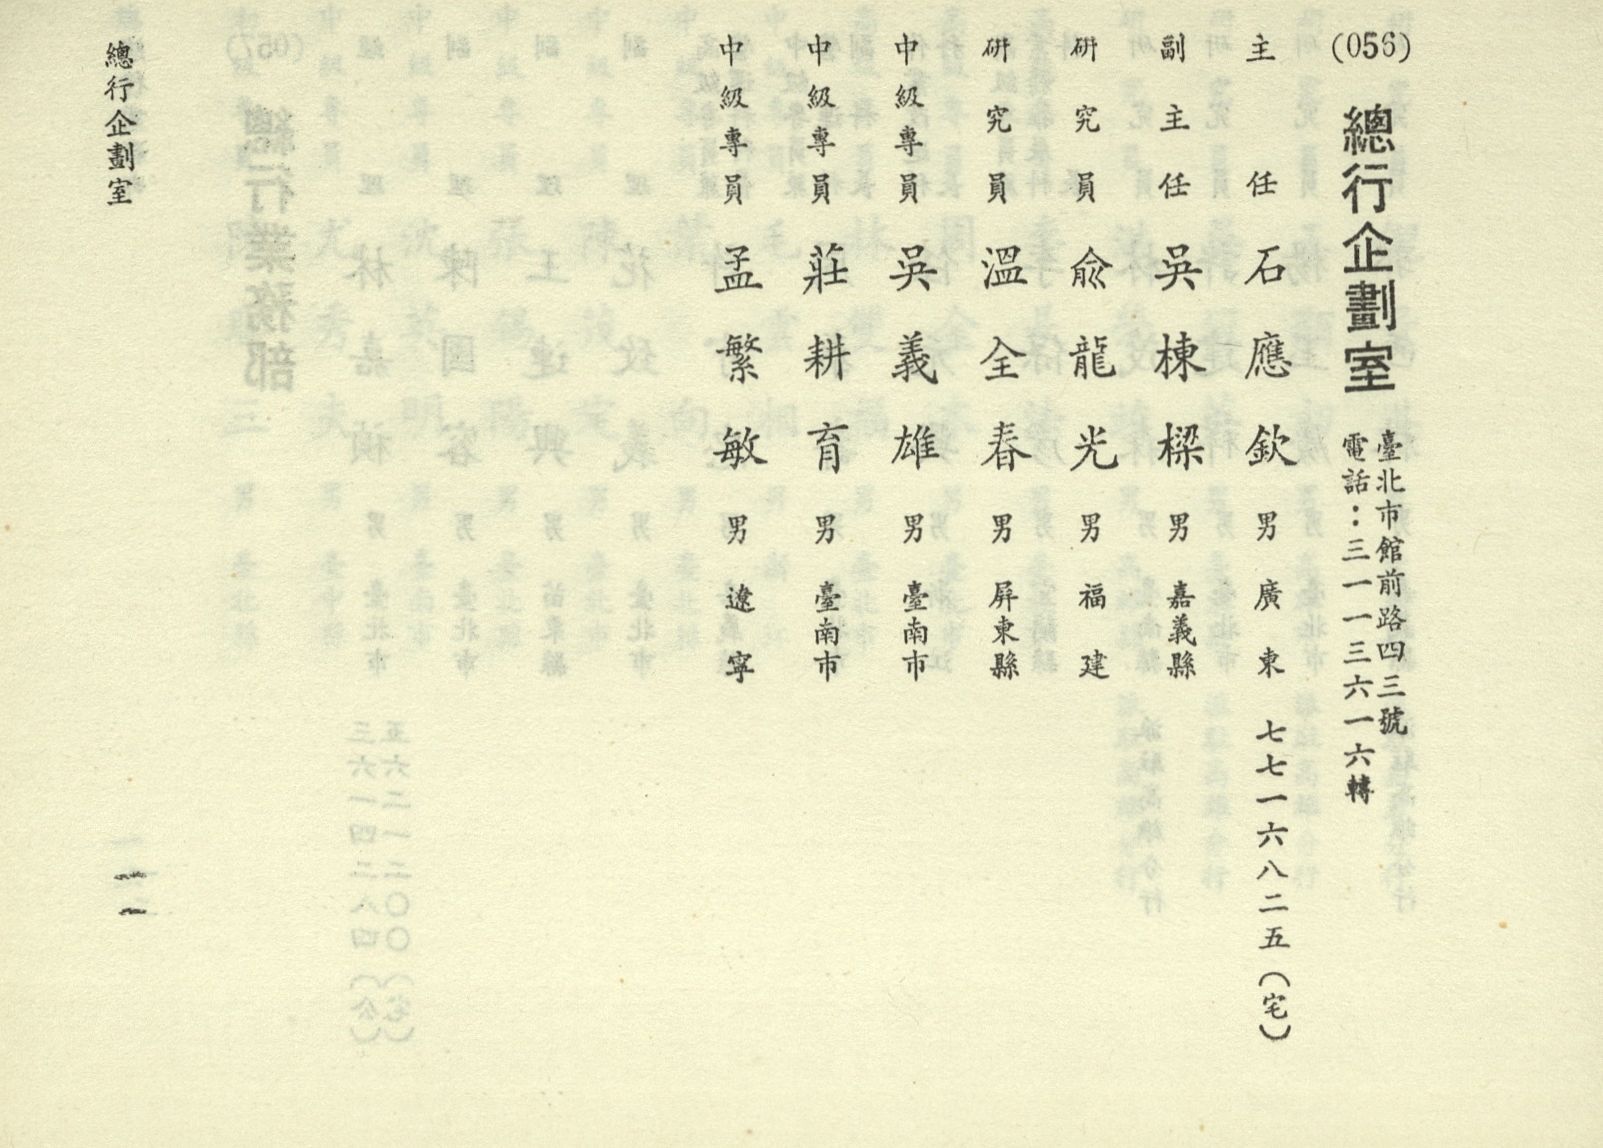 (056) 總行企劃室
臺北市館前路四三號
電話：三一一三六一六轉
主任 石應欽 男 廣東 七七一六八二五（宅）
副主任 吳棟樑 男 嘉義縣
研究員 俞龍光 男 福建
研究員 溫全春 男 屏東縣
中級專員 吳義雄 男 臺南市
中級專員 莊耕育 男 臺南市
中級專員 孟繁敏 男 遼寧
總行企劃室
一一